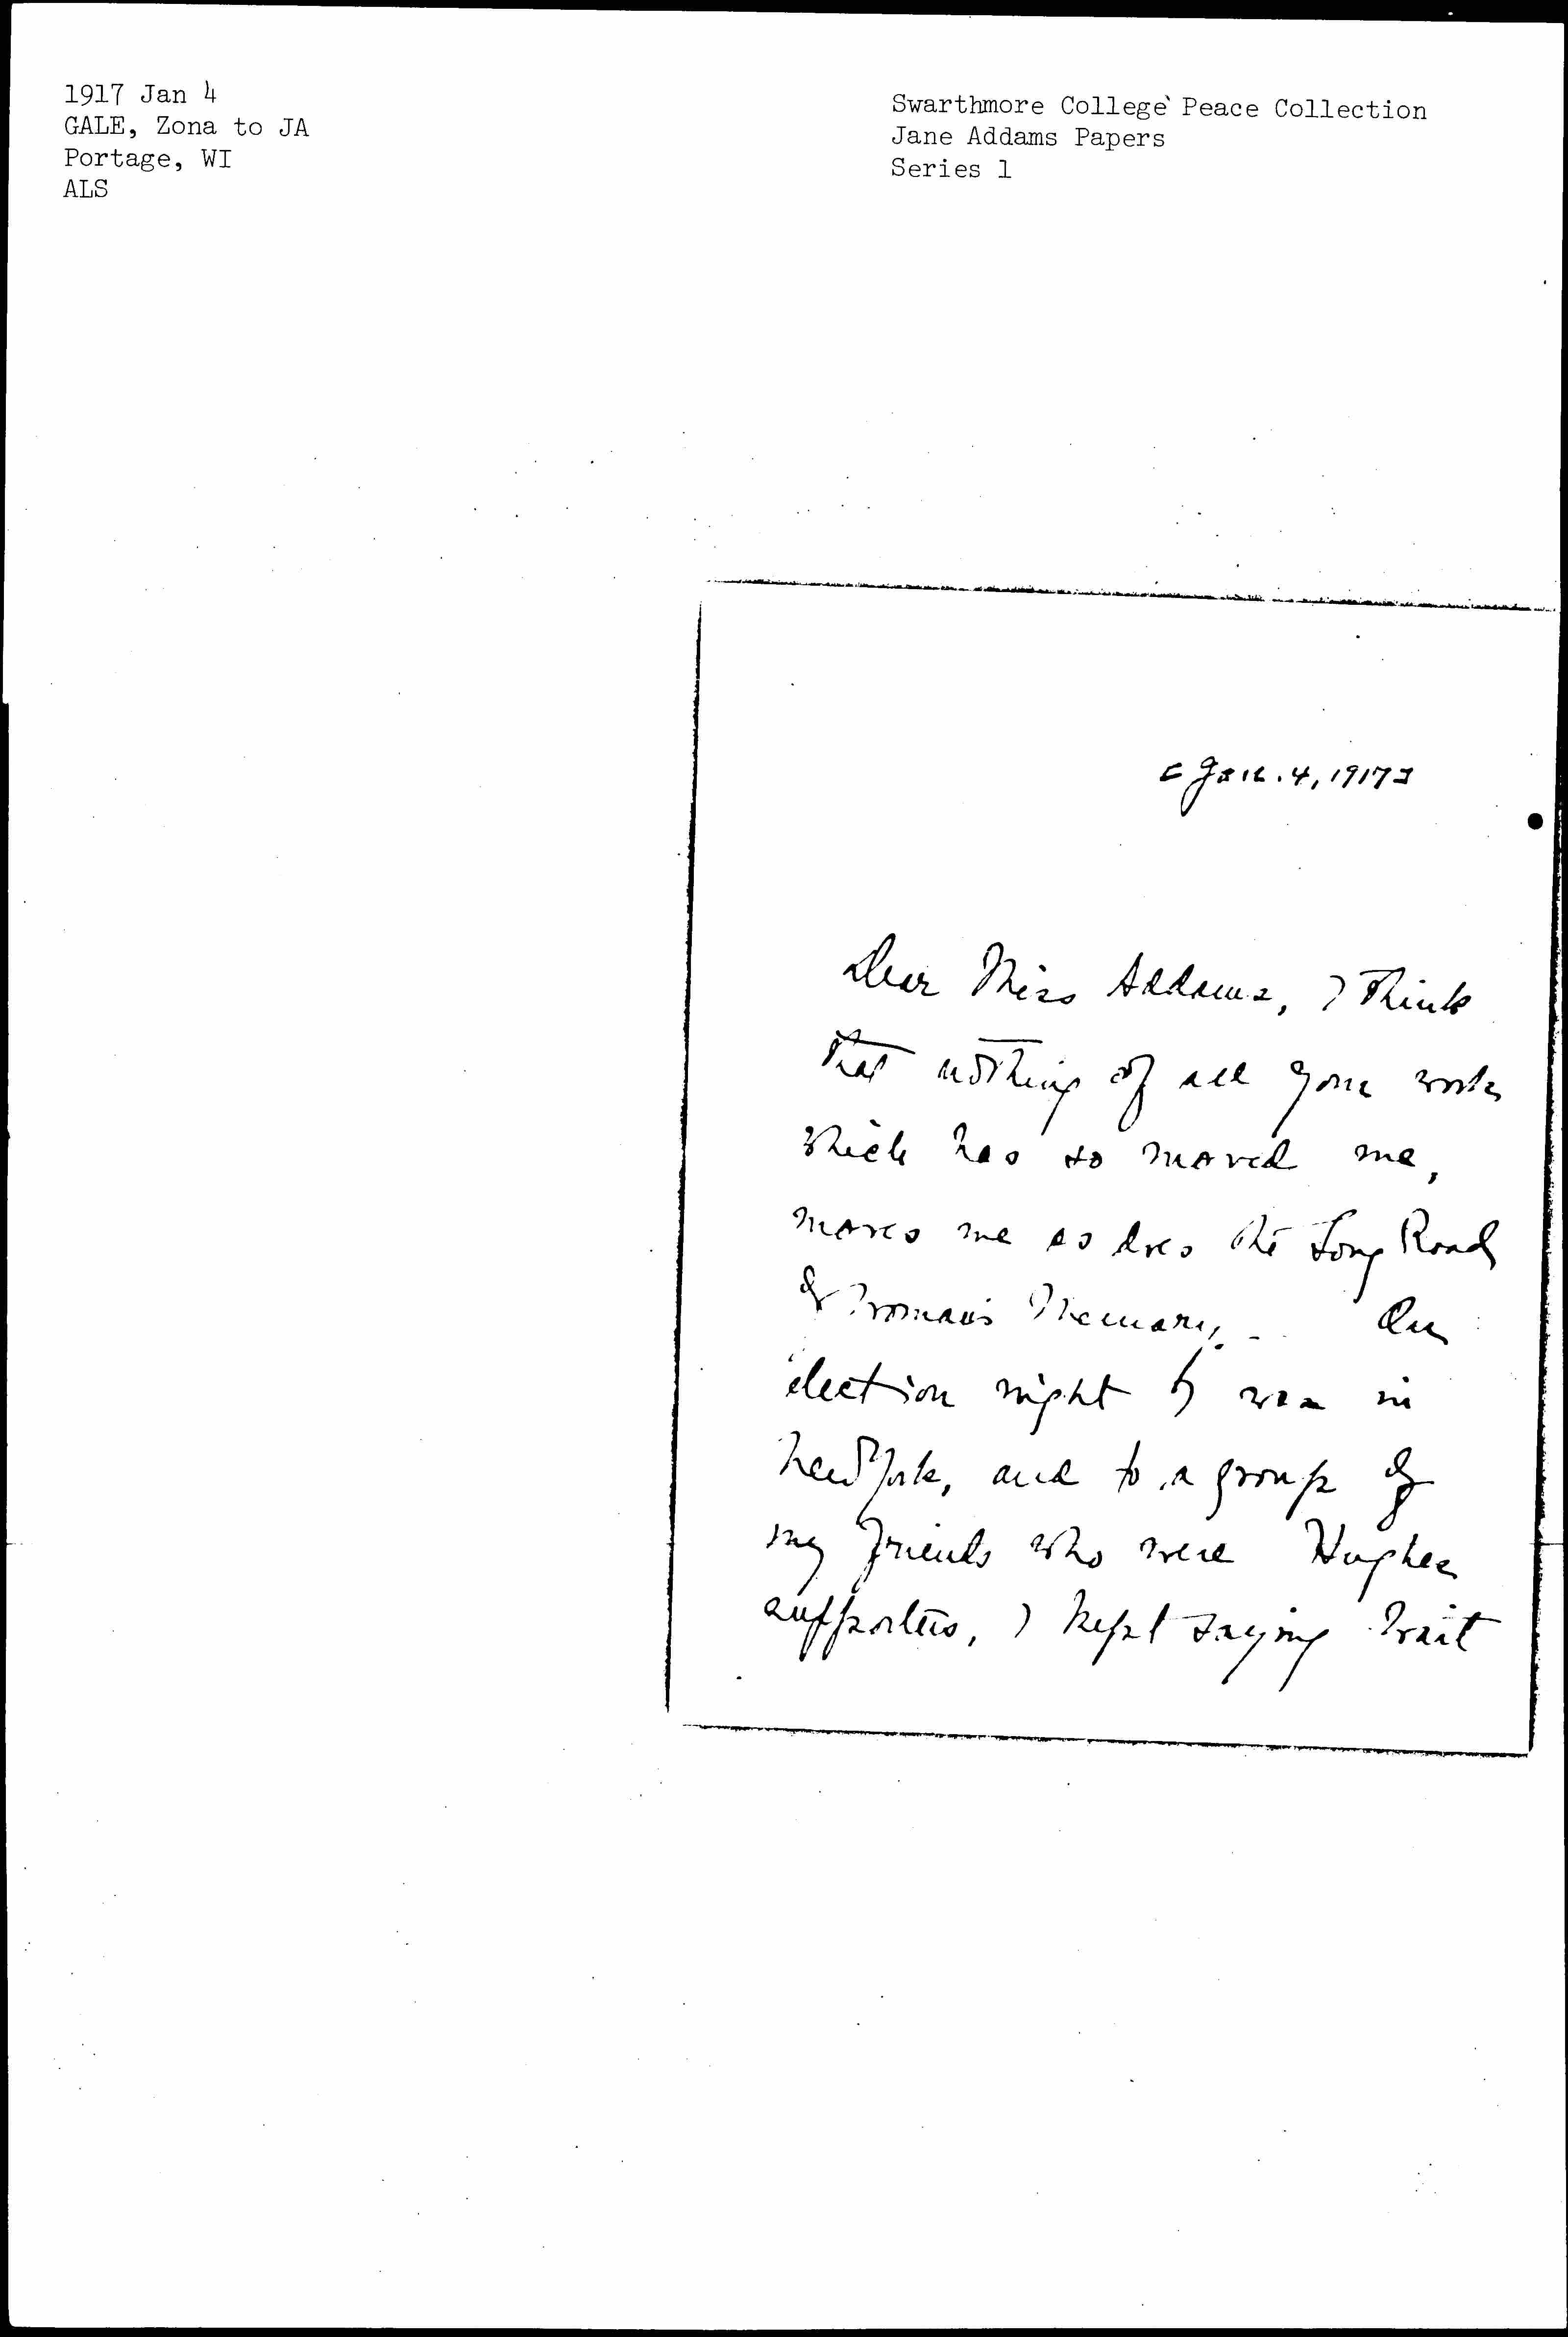 1917 Jan 4
GALE, Zona to JA
Portage, WI
ALS
Swarthmore College Peace Collection
Jane Addams Papers
Series 1
[Jan. 4, 1917]
Dear Miss Addams, I think
that nothing of all your work
which has so moved me,
moves me as does The Long Road
of Woman's Memory. - On
election night I was in
New York, and to a group of
my friends who were Hughes
supporters, I kept saying "Wait